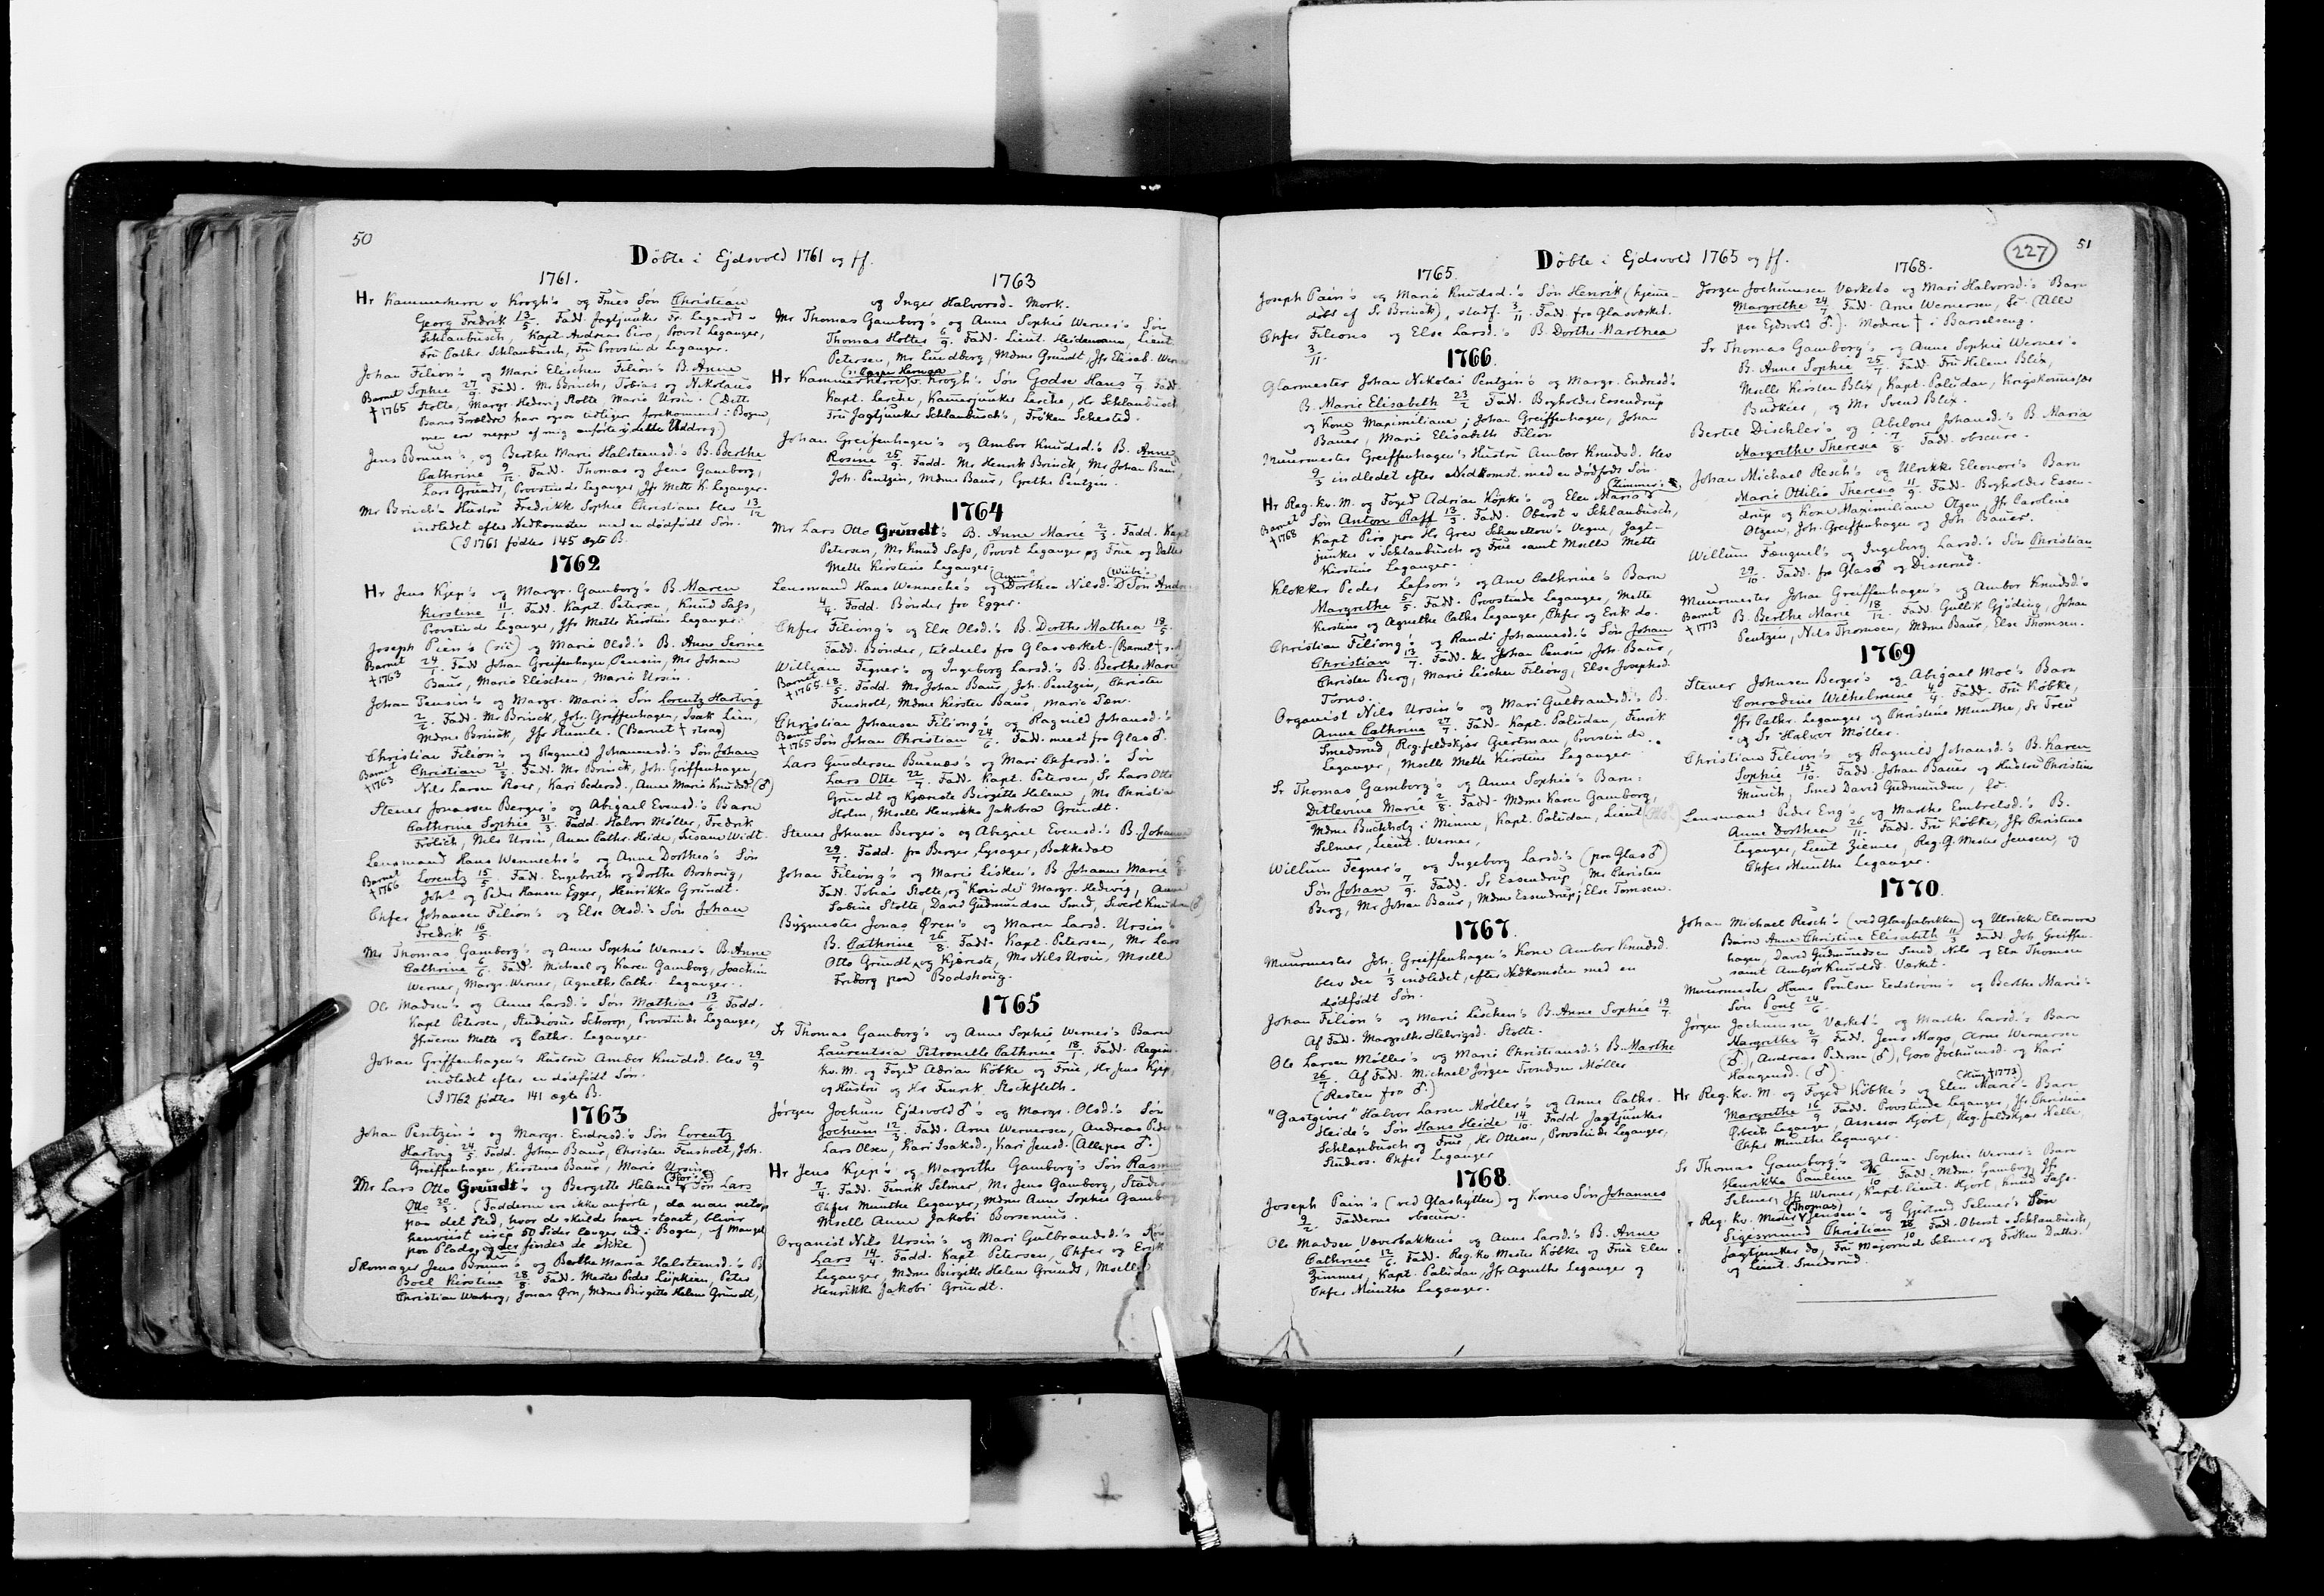 50
Döbte i Ejdsvold 1761 og ff.
1761.
Hr Kammerherre v Krogh's og Frues Søn Christian
Georg Fredrik 13/5. Fadd. Jagtjunker Fr. Legardt v
Schlanbusch, Kapt. Andreas Piro, Provst Leganger,
Fru Cathr Schlanbusch, Fru Provstinde Leganger.
Johan Filion's og Marie Elischen Filion's B. Anne
Barnet Sophie 27/9. Fadd. Mr Brinch, Tobias og Nikolaus
† 1765 Stolte, Margr. Hedevig Stolte, Marie Ursin. (Dette
Barns Forældre har ogsaa tidligere forekommet i Bogen,
men ere neppe af mig anførte i dette Uddrag.)
Jens Bruun's og Berthe Marie Halsteensd.'s B. Berthe
Cathrine 9/12. Fadd. Thomas og Jens Gamborg,
Lars Grundt, Provstinde Leganger, Jfr Mette K. Leganger.
Mr Brinch's Hustru Fredrikk Sophie Christians blev 13/12
indledet efter Nedkomsten med en dødfødt Søn.
(I 1761 fødtes 145 ægte B.
1762
Hr Jens Kjep's og Margr. Gamborg's B. Maren
Kirstine 11/1. Fadd. Kapt. Petersen, Knud Sass,
Provstinde Leganger, Jfr Mette Kirstine Leganger.
Joseph Pien's (sic) og Marie Olsd.'s B. Anne Serine
Barnet 24/1. Fadd Johan Greifenhagen, Pensin, Mr Johan
† 1763 Baur, Marie Elischen, Marie Ursin.
Johan Pensin's og Margr. Marie's Søn Lorentz Hartvig
2/2. Fadd. Mr Brinck, Joh. Greiffenhagen, Isak Lien,
Mdme Brinck, Jfr Stumle. (Barnet † strax)
Christian Filion's og Ragnild Johannesd.'s Søn Johan
Barnet Christian 21/3. Fadd. Mr Brinck, Joh. Griffenhagen,
† 1763 Nils Larsen Roer, Kari Pedersd., Anne Marie Knudsd. (♂)
Stener Jonassen Berger's og Abigael Evensd.'s Barn
Cathrine Sophie 31/3. Fadd. Halvor Møller, Fredrik
Frölich, Nils Ursin, Anne Cathr. Heide, Susane Widt.
Lensmand Hans Wennecke's og Anne Dorthea's Søn
Barnet Lorentz 15/5. Fadd. Engebreth og Dorthe Boshoug,
† 1766 Joh.s og Peder Hansen Egger, Henrikka Grundt.
Chfer Johansen Filion's og Else Olsd.'s Søn Johan
Fredrik 16/5.
Mr Thomas Gamborg's og Anne Sophie Werner's B. Anne
Cathrine 6/6. Fadd. Michael og Karen Gamborg, Joachim
Werner, Margr. Werner, Agnethe Cathr Leganger.
Ole Madsen's og Anne Larsd.'s Søn Mathias 13/6 Fadd.
Kapt Petersen, Studiosus Schorop, Provstinde Leganger,
Jfruerne Mette og Cathr. Leganger.
Johan Griffenhagen's Hustru Ambor Knudsd. blev 29/9
indledet efter en dødfødt Søn.
(I 1762 fødtes 141 ægte B.
1763
Johan Pentzin's og Margr. Endresd.'s Søn Lorentz
Hartvig 24/5. Fadd. Johan Baur, Christen Fensholt, Joh.
Greiffenhagen, Kirstens Baur, Marie Ursin.
Mr Lars Otto Grundt's og Bergitte Helene Søn Lars
Otto 25/3. (Fadderne ere ikke anførte, da man netop
paa det Sted, hvor de skulde have staaet, bliver
henvist circa 50 Sider længer ud i Bogen, af Mangel
paa Plads, og der findes de ikke)
Skomager Jens Bruun's og Berthe Maria Halsteensd.'s B
Boel Kirstine 28/8. Fadd. Mester Peder Lüpkien, Peter
Christian Warberg, Jonas Ørn, Mdme Birgitte Helene Grundt,
1763
og Inger Halvorsd. Mork.
Mr Thomas Gamborg's og Anne Sophie Werner's Søn
Thomas Holter 6/9. Fadd. Lieut. Heidemann, Lieut.
Petersen, Mr Lundberg, Mdme Grundt, Jfr Elisab. Werner
Hr Kammerherre v. Krogh's Søn Godse Hans 7/9 Fadd.
Kapt. Lerche, Kammerjunker Lerche, Hr Schlanbusch
Fru Jagtjunker Schlanbusch's, Frøken Sehested
Johan Greifenhagen's og Ambor Knudsd.'s B. Anne
Rosine 25/9. Fadd. Mr Henrik Brinck, Mr Johan Baur
Joh. Pentzin, Mdme Baur, Grethe Pentzin.
1764
Mr Lars Otto Grundt's B. Anne Marie 2/3. Fadd. Kapt
Petersen, Mr Knud Sass, Provst Leganger og Frue og Datter
Mette Kirstine Leganger.
Lensmand Hans Wennecke's og (Anne) Dorthea Nilsd.
4/4. Fadd. Bønder fra Egger.
Chfer Filiong's og Else Olsd.'s B. Dorthe Mathea 19/5.
Fadd. Bønder, tildeels fra Glasværket. (Barnet †
William Fegner's og Ingeborg Larsd.'s B. Berthe Marie
Barnet 18/5. Fadd. Mr Johan Baur, Joh. Pentzin, Christen
† 1765. Fensholt, Mdme Kirsten Baur, Marie Tøn.
Christian Johansen Filiong's og Ragnild Johansd.'s
Barnet † 1765 Søn Johan Christian 24/6. Fadd. meest fra Glas ♂.
Lars Gundersen Buenæs's og Mari Chfersd.'s Søn
Lars Otte 22/7. Fadd. Kapt. Petersen, Sr Lars Otto
Grundt og Kjæreste Birgitte Helene, Mr Christian
Holm, Mselle Henrikke Jakobra Grundt.
Stener Johnsen Berger's og Abigael Evensd.'s B. Johanne
29/7. Fadd. fra Berger, Lysager, Bakkedal
Johan Filiong's og Marie Lisken's B Johanne Marie
Fadd. Tobias Stolte, og "Kvinde" Margr. Hedevig, Anne
Sabine Stolte, David Gudmundsen Smed, Sivert Knudsen (♂)
Bygmester Jonas Øren's og Maren Larsd. Ursin's
B. Cathrine 26/8. Fadd. Kapt. Petersen, Mr Lars
Otto Grundt og Kjæreste, Mr Nils Ursin, Mselle
Friborg paa Bødshoug.
1765
Sr Thomas Gamborg's og Anne Sophie Werner's Barn
Laurentsia Petronelle Cathrine 18/1. Fadd. Regim.
Kv. M. og Foged Adrian Köbke og Frue, Hr Jens Kjep,
og Hustru og Hr Fenrik Stockfleth.
Jørgen Jochum Ejdsvold ♂'s og Margr. Olsd.'s Søn
Jochum 12/3. Fadd. Arne Wernersen, Andreas
Lars Olsen, Kari Isaksd., Kari Jensd. (Alle paa ♂.)
Hr Jens Kjep's og Margrethe Gamborg's Søn
7/4. Fadd. Fenrik Selmer, Mr Jens Gamborg,
Chfer Munthe Leganger, Mdme Anne Sophie Gamborg
Mselle Anne Jakobi Borsenius.
Organist Nils Ursin's og Mari Gulbrandsd.'s
Lars 14/4. Fadd. Kapt Petersen, Chfer og Erik
Leganger, Mdme Birgitte Helene Grundt, Mselle
Henrikke Jakobi Grundt.
227
51
Döbte i Ejdsvold 1765 og ff.
1765.
Joseph Pain's og Marie Knudsd.'s Søn Henrik (hjemme-
døbt af Sr Brinck), stadf. 3/11. Fadd. fra Glasværket.
Chfer Filions og Else Larsd.'s B. Dorthe Marthea
3/11.
1766.
Glarmester Johan Nikolai Pentzin's og Margr. Endresd's
B. Marie Elisabeth 23/2 Fadd. Bogholder Essendrup
og Kone Maximiliane; Johan Greiffenhagen, Johan
Bauer, Marie Elisabeth Filion
Muurmester Greiffenhagen's Hustru Ambor Knudsd. blev
9/3 indledet efter Nedkomst. med en dødfødt Søn.
Hr Reg. Kv. M. og Foged Adrian Köpke's og Elen Maria's (Zimmer's)
Barnet Søn Anton Raff 13/3. Fadd. Oberst v Schlanbusch,
† 1768 Kapt Piro paa Hr Grev Schmettow's Vegne, Jagt-
junker v Schlanbusch og Frue samt Mselle Mette
Kirstine Leganger.
Klokker Peder Lefson's og Ane Cathrine's Barn
Margrethe 5/5. Fadd. Provstinde Leganger, Mette
Kirstine og Agnethe Cathr Leganger, Chfer og Erik do.
Christian Filiong's og Randi Johannesd.'s Søn Johan
Christian 13/7. Fadd. Johan Pensin, Joh. Baur,
Christen Berg, Marie Lischen Filiong, Else Josephsd.
Torns.
Organist Nils Ursin's og Mari Gulbrandsd.'s B.
Anne Cathrine 27/7. Fadd. Kapt. Paludan, Fenrik
Smedsrud, Reg. feldskjær Giertman, Provstinde
Leganger, Mselle Mette Kirstine Leganger.
Sr Thomas Gamborg's og Anne Sophie's Barn:
Ditlevine Marie 2/8. Fadd. Mdme Karen Gamborg,
Mdme Buchholz i Minne, Kapt. Paludan, Lieut
Selmer, Lieut. Werner,
Willum Fegner's og Ingeborg Larsd.'s (paa Glas ♂)
Søn Johan 7/9. Fadd. Sr Essendrup, Mr Christen
Berg, Mr Johan Baur, Mdme Essendrup; Else Tomsen.
1767.
Muurmester Joh. Greiffenhagen's Kone Ambor Knudsd.
blev den 1/3 indledet, efter Nedkomsten med en
dødfødt Søn.
Johan Filion's og Marie Lischen's B. Anne Sophie 19/7.
Af Fadd. Margrethe Hedvigsd. Stolte.
Ole Larsen Møller's og Marie Christiansd.'s B. Marthe
26/7. Af Fadd. Michael Jørgen Trondsen Møller
(Resten fra ♂.)
"Gastgiver" Halvor Larsen Møller's og Anne Cathr.
Heide's Søn Hans Heide 14/10. Fadd Jagtjunker
Schlanbusch og Frue, Hr Ottesen, Provstinde Leganger,
Studios. Chfer Leganger
1768.
Joseph Pain's (ved Glashytten) og Kones Søn Johannes
9/2. Fadderne obscure.
Ole Madsen Voverbakken's og Anne Larsd.'s B. Anne
Cathrine 12/6. Fadd. Reg. Kv Mester Köbke og Frue Elen
Zimmer, Kapt. Paludan, Jfr Agnethe Leganger og
Chfer Munthe Leganger.
1768.
Jørgen Jochumsen Værkets og Mari Halvorsd.'s Barn
Margrethe 24/7 Fadd. Arne Wernersen, &c (Alle
paa Ejdsvold ♂.). Moderen † i Barselseng.
Sr Thomas Gamborg's og Anne Sophie Werner's
B. Anne Sophie 25/7. Fadd. Fru Helene Blix,
Mselle Kirsten Blix, Kapt. Paludan, Krigskommissær
Budkier, og Mr Svend Blix.
Bertel Dischler's og Abelone Johansd.'s B. Maria
Margrithe Theresia 7/8 Fadd. obscure.
Johan Michael Resch's og Ulrikke Eleonore's Barn
Marie Ottilia Theresia 11/9. Fadd. Bogholder Essen-
drup og Kone Maximiliane Otzen, Jfr Caroline
Otzen, Joh. Greiffenhagen og Joh. Bauer.
Willum Fængnel's og Ingeborg Larsd.'s Søn Christian
29/10. Fadd. fra Glas ♂ og Disserud.
Muurmester Johan Greiffenhagen's og Ambor Knudsd.'s
Barnet B. Berthe Marie 18/12. Fadd. Gullik Gjöding, Johan
† 1773 Pentzen, Nils Thomsen, Mdme Baur, Else Thomsen.
1769
Stener Johnsen Berger's og Abigael Moe's Barn
Conradine Wilhelmine 4/4. Fadd. Fru Köbke,
Jfr Cathr. Leganger og Christine Munthe, Sr Treu
og Sr Halvor Møller.
Christian Filion's og Ragnild Johansd.'s B. Karen
Sophie 15/10. Fadd. Johan Bauer og Hustru Christine
Munch, Smed David Gudmundsen, &c.
Lensmand Peder Eng's og Marthe Embretsd.'s B.
Anne Dorthea 26/11. Fadd. Fru Köbke, Jfr Christine
Leganger, Lieut Ziemer, Reg. Q. Mester Jensen, og
Chfer Munthe Leganger.
1770.
Johan Michael Resch's (ved Glasfabrikken) og Ulrikke Eleonora
Barn Anne Christine Elisabeth 11/3 Fadd. Joh. Greiffen-
hagen, David Gudmundsen Smed, Nils og Else Thomsen
samt Ambjør Knudsd. Værket.
Muurmester Hans Poulsen Eedstrøm's og Berthe Marie's
Søn Poul 24/6.
Jørgen Jochumsen Værket's og Marthe Larsd.'s Barn
Margrethe 2/9 Fadd. Jens Mago, Arne Wernersen
(♂), Andreas Pedersen (♂), Goro Jochumsd. og Kari
Haagensd. (♂)
Hr Reg. Kv. M. og Foged Köbke's og Elen Marie's Barn (Hun † 1773)
Margrethe 16/9 Fadd. Provstinde Leganger, Jfr Christine
Leganger, Assessor Hjort, Reg. feldskjær Nelle,
Chfer Munthe Leganger.
Sr Thomas Gamborg's og Anne Sophie Werner's Barn
Henrikke Pauline 16/10. Fadd. Mdme Gamborg, Jfr
Selmer, Jfr Werner, Kapt. Lieut. Hjort, Knud Sass.
Reg. Kv. Mester (Thomas) Jensen's og Gjertrud Selmer's Søn
Sigismund Christian 28/10 Fadd. Oberst v Schlanbusch,
Jagtjunker do, Fru Majorinde Selmer og Frøken Datter
og Lieut. Smedsrud.